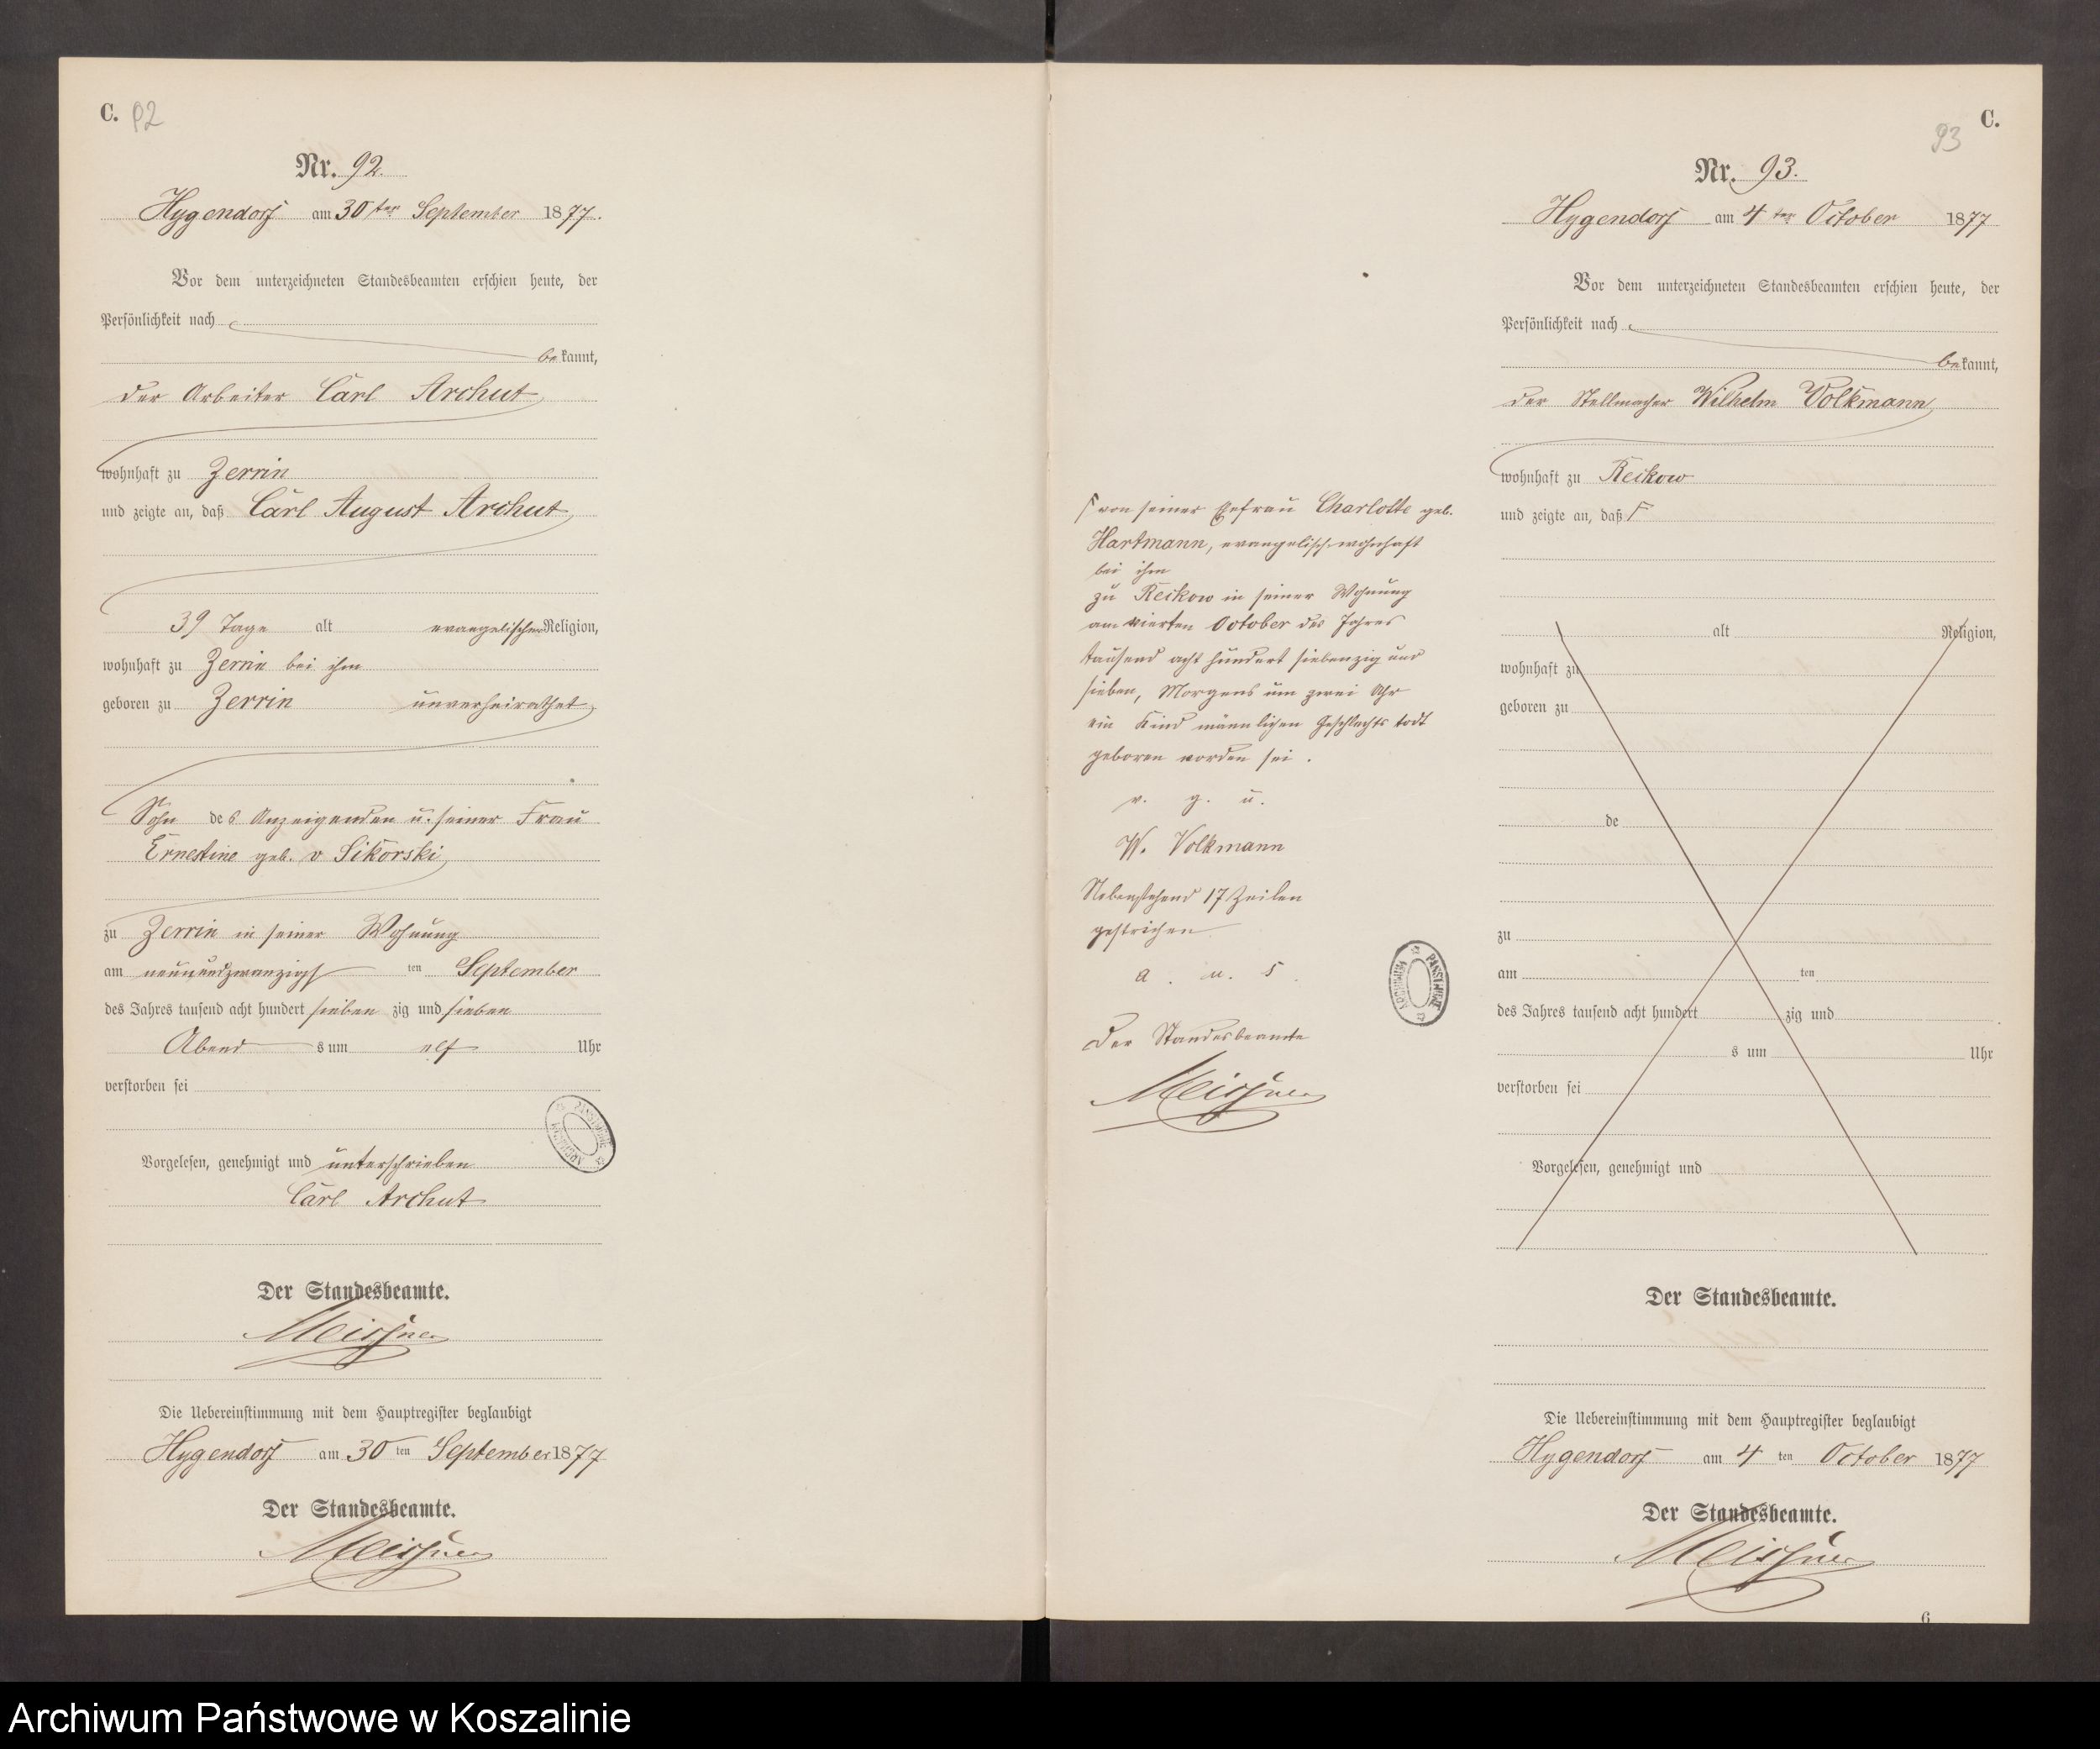 C. 92
Nr. 92.
Hygendorf am 30 ten September 1877.
Vor dem unterzeichneten Standesbeamten erschien heute, der
Persönlichkeit nach
bekannt,
der Arbeiter Carl Archut
wohnhaft zu Zerrin
und zeigte an, daß Carl August Archut
39 Tage alt evangelischer Religion,
wohnhaft zu Zerrin bei ihm
geboren zu Zerrin unverheirathet
Sohn des Anzeigenden u. seiner Frau
Ernestine geb. v Sikorski
zu Zerrin in seiner Wohnung
am neunundzwanzigst ten September
des Jahres tausend acht hundert sieben zig und sieben
Abend s um elf Uhr
verstorben sei
Vorgelesen, genehmigt und unterschrieben
Carl Archut
Der Standesbeamte.
Meissner
Die Uebereinstimmung mit dem Hauptregister beglaubigt
Hygendorf am 30 ten September 1877
Der Standesbeamte.
Meissner
C.
93
Nr. 93.
Hygendorf am 4 ten October 1877
Vor dem unterzeichneten Standesbeamten erschien heute, der
Persönlichkeit nach
bekannt,
der Stellmacher Wilhelm Volkmann
wohnhaft zu Reikow
und zeigte an, daß F
F von seiner Ehefrau Charlotte geb.
Hartmann, evangelisch wohnhaft
bei ihm
zu Reikow in seiner Wohnung
am vierten October des Jahres
tausend acht hundert siebenzig und
sieben, Morgens um zwei Uhr
ein Kind männlichen Geschlechts todt
geboren worden sei.
v. g. u.
W. Volkmann
Nebenstehend 17 Zeilen
gestrichen
a. u. s.
Der Standesbeamte
Meissner
alt Religion,
wohnhaft zu
geboren zu
de
zu
am ten
des Jahres tausend acht hundert zig und
s um Uhr
verstorben sei
Vorgelesen, genehmigt und
Der Standesbeamte.
Die Uebereinstimmung mit dem Hauptregister beglaubigt
Hygendorf am 4 ten October 1877
Der Standesbeamte.
Meissner
6
ARCHIWUM PAŃSTWOWE
ARCHIWUM PAŃSTWOWE
Archiwum Państwowe w Koszalinie